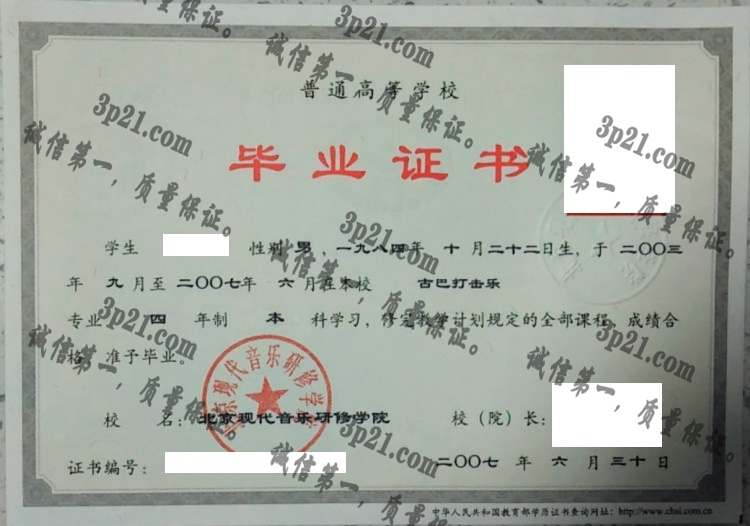 普通高等学校
毕业证书
学生 性别 男，一九八四年 十月二十二日生，于二〇〇三
年 九月至二〇〇七年 六月在本校 古巴打击乐
专业 四 年制 本 科学习，修完教学计划规定的全部课程，成绩合
格，准予毕业。
校 名：北京现代音乐研修学院 校（院）长：
证书编号： 二〇〇七 年 六 月 三十 日
中华人民共和国教育部学历证书查询网址：http://www.chsi.com.cn
北京现代音乐研修学院
3p21.com
诚信第一，质量保证。
3p21.com
诚信第一，质量保证。
3p21.com
诚信第一，质量保证。
3p21.com
诚信第一，质量保证。
3p21.com
诚信第一，质量保证。
3p21.com
诚信第一，质量保证。
3p21.com
诚信第一，质量保证。
3p21.com
诚信第一，质量保证。